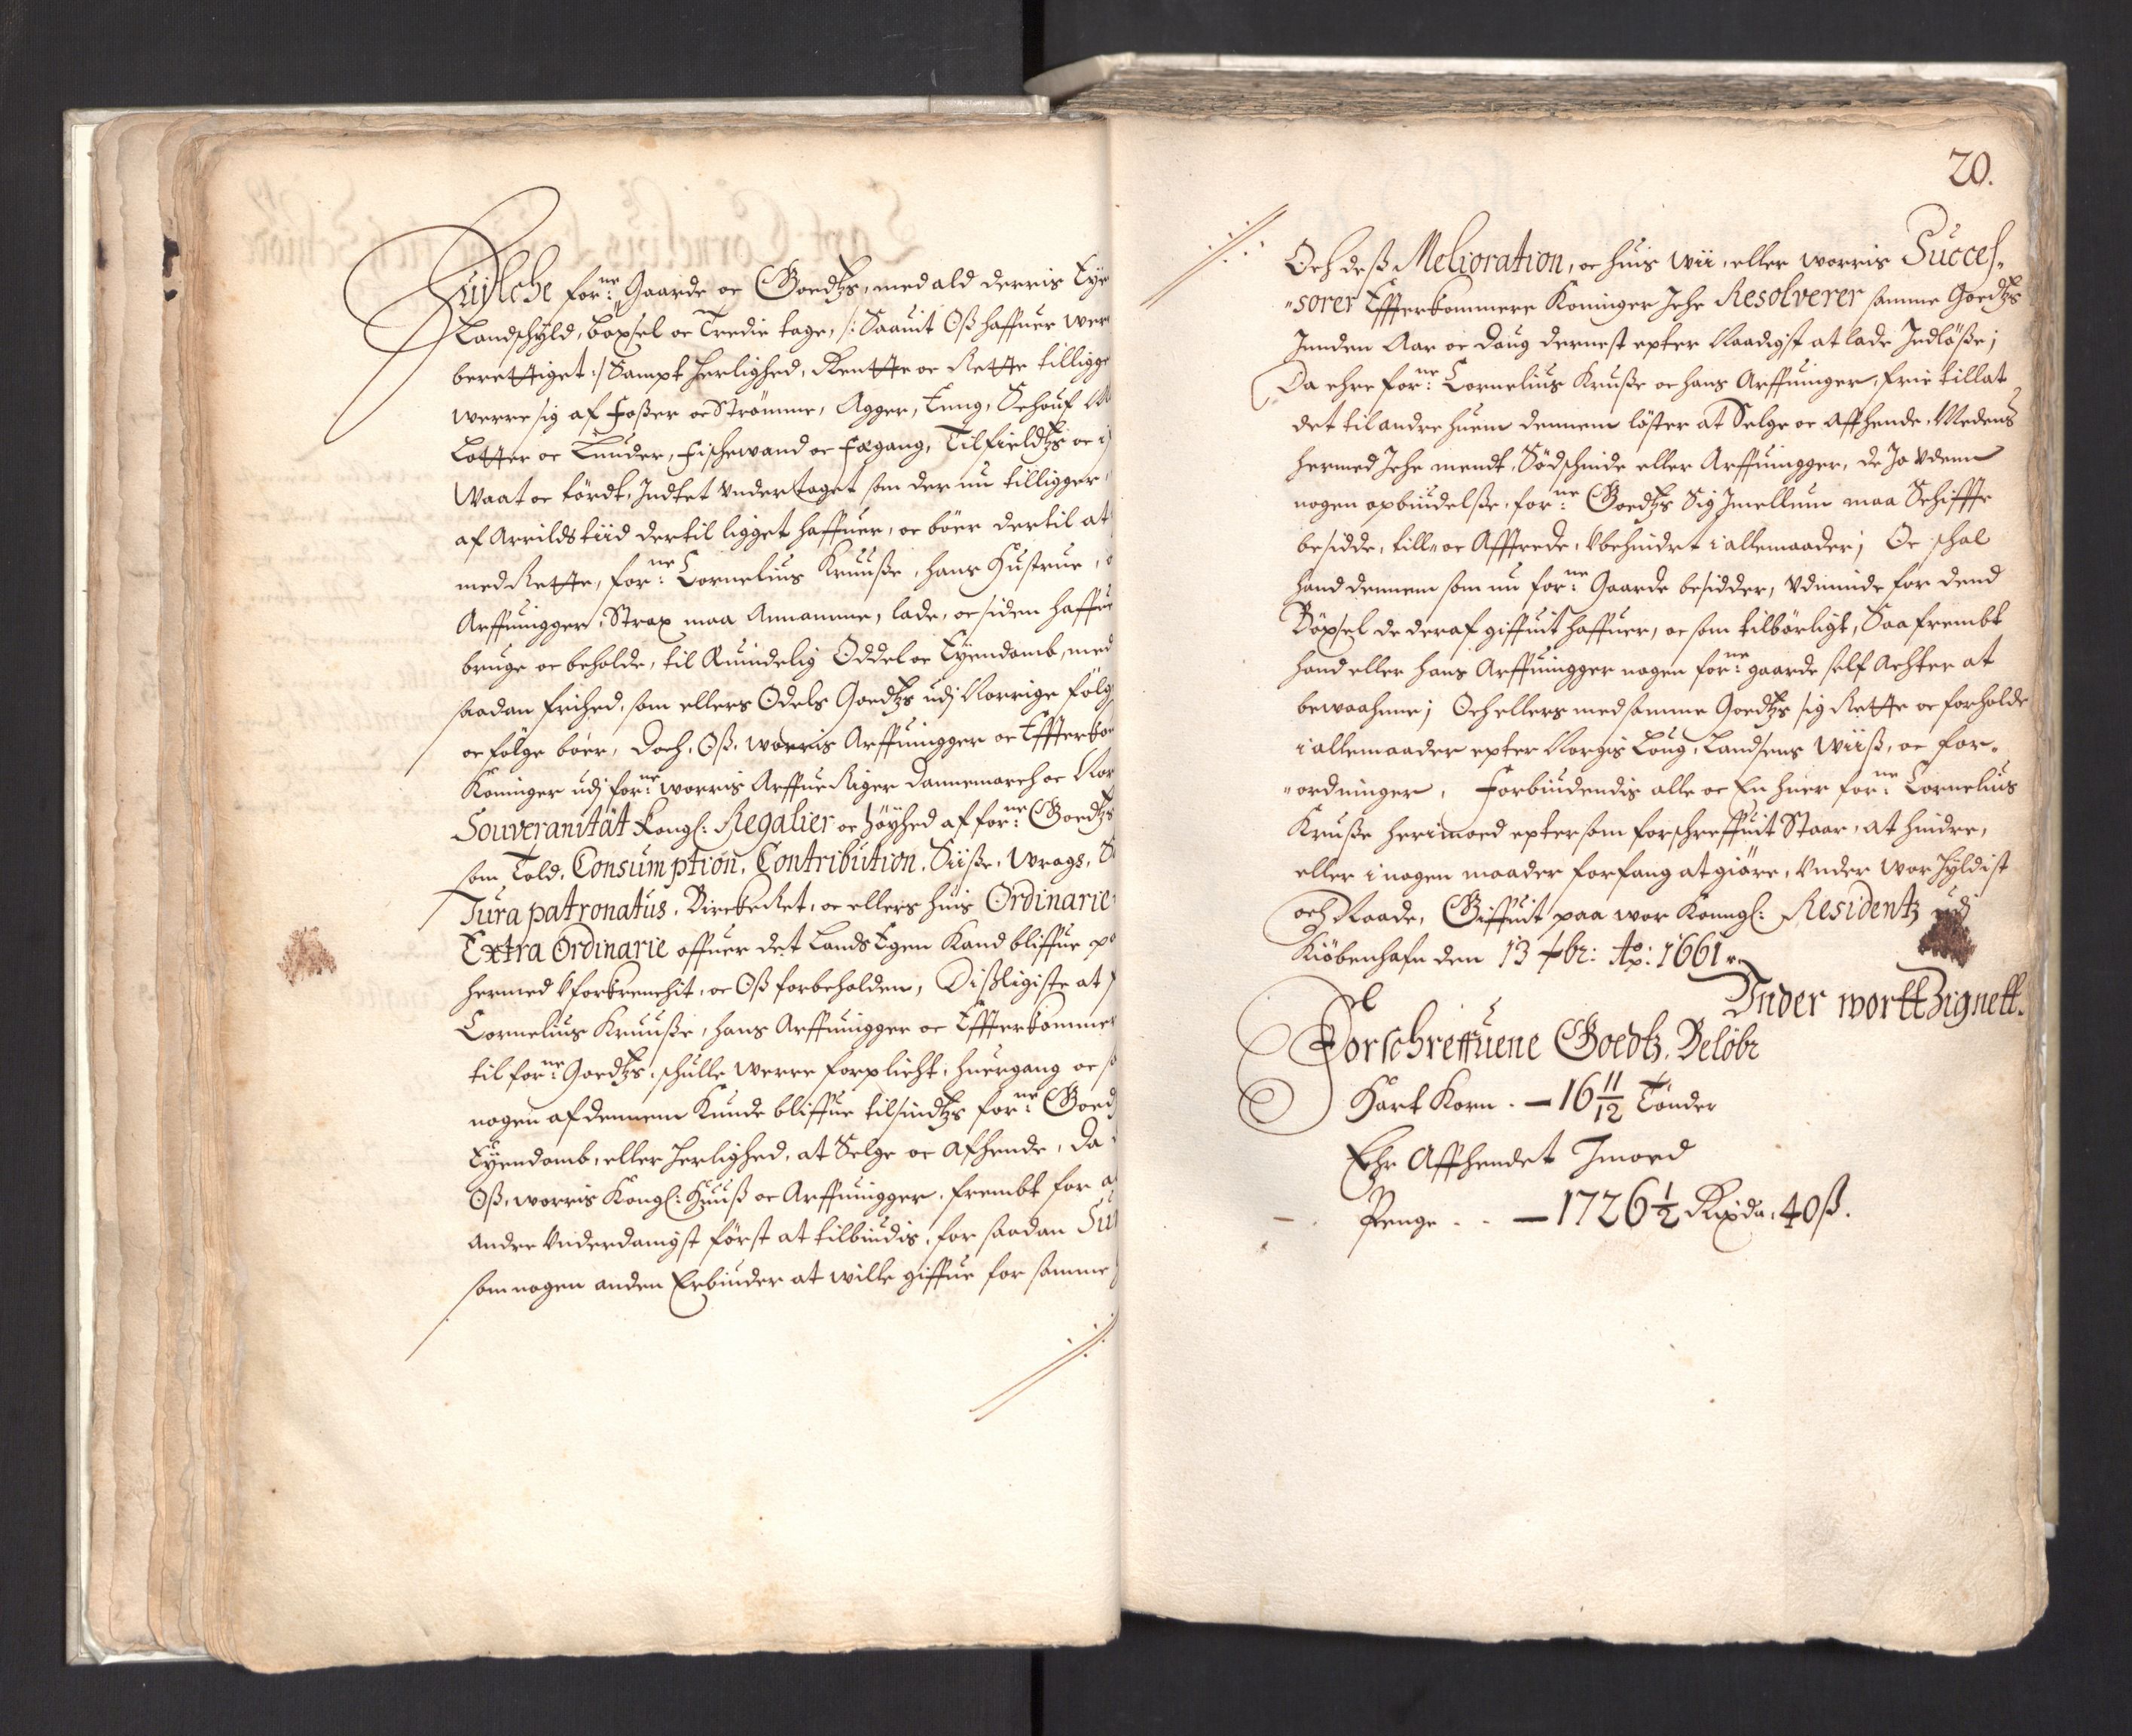 Huilche for:ne Gaarde oc Goedtzs, med ald derris Eye
Landschyld, boxsel oc Tredie tage, /: Saauit Oß haffuer wer
berettiget :/ Sampt herlighed, Rentte oc Rette tilligge
werre sig af Foßer oc Strömme, Agger, Eng, Schouf
Lotter oc Lunder, Fischewand oc Fægang, Til fieldtzs oc
Waat oc tördt, Indtet Undertaget som der nu tilligger
af Arrilds tiid dertil ligget haffuer, oc böer dertil at
med Rette, for:ne Cornelius Kruuße, hans Hustrue,
Arffuingger, Strax maa Annamme, lade, oc siden haffue
bruge oc beholde, til Æuindelig Oddel oc Eyendomb, med
saadan frihed, som ellers Odels Goedtzs udj Norrige fölg
oc fölge böer, Doch, Oß, worris Arffuingger oc Effterko
Koninger udj for:ne worris Arffue Riger Dannemarch oc Nor
Souveranität Kongl: Regalier oc höyhed af for:ne Goedtzs
som Told, Consumption, Contribution, Siiße, Wrags,
Jura patronatus, Bircke Ret, oc ellers huis Ordinarie
Extra Ordinarie offuer det Lands Egen Kand bliffue
hermed Uforkrenchit, oc Oß forbeholden, Disligiste at
Cornelius Kruuße, hans Arffuingger oc Effterkommer
til for:ne Goedtzs, schulle werre forplicht, huergang oc
nogen af dennem Kunde bliffue tilsindtzs for:ne Goed
Eyendomb, eller herlighed, at Selge oc Afhende, Da
Oß, worris Kongl: Huuß oc Arffuingger, frembt for
andre Underdanigst först at tilbiudis, for saadan
som nogen anden Erbiuder at wille giffue for samme
20.
Och deß Melioration, oc huis wii, eller worris Succes-
sorer Effterkommere Koninger Iche Resolverer samme Goedtzs
Innden Aar oc Daug dernest epter Naadigst at lade Indlöße;
Da ehre for:ne Cornelius Kruße oc hans Arffuinger, frie tillat
det til andre huem dennem löster at Selge oc Affhende, Medens
hermed Iche mendt, Södschinde eller Arffuingger, de Io Udenn
nogen opbiudelße, for:ne Goedtzs Sig Imellum maa Schiffte
besidde, till- oc Afftrede, Ubehindret i allemaader; Oc schal
hand dennem som nu for:ne Gaarde besidder, Udminde for dend
Böxsel de deraf giffuit haffuer, oc som tilbörligt, Saafrembt
hand eller hans Arffuingger nogen for:ne gaarde self Achter at
bewaahnne; Och ellers med samme Goedtzs sig Rette oc forholde
i allemaader epter Norgis Loug, Landsens wiiß, oc for-
ordninger, Forbiudendis alle oc En huer for:ne Cornelius
Kruße herimoed eptersom forschreffuit Staar, at hindre,
eller i nogen maader forfang at giöre, Under wor hyldist
och Naade, Giffuit paa wor Konngl: Residentz udj
Kiöbenhafn den 13 7br: Ao: 1661
Under wortt Zignett.
Forschreffuene Goedtz, Belöbr
Hart Korn. — 16 11/12 Tönder
Ehr Affhendet Imoed
Penge . . — 1726 1/2 Rixdr, 40 ß.